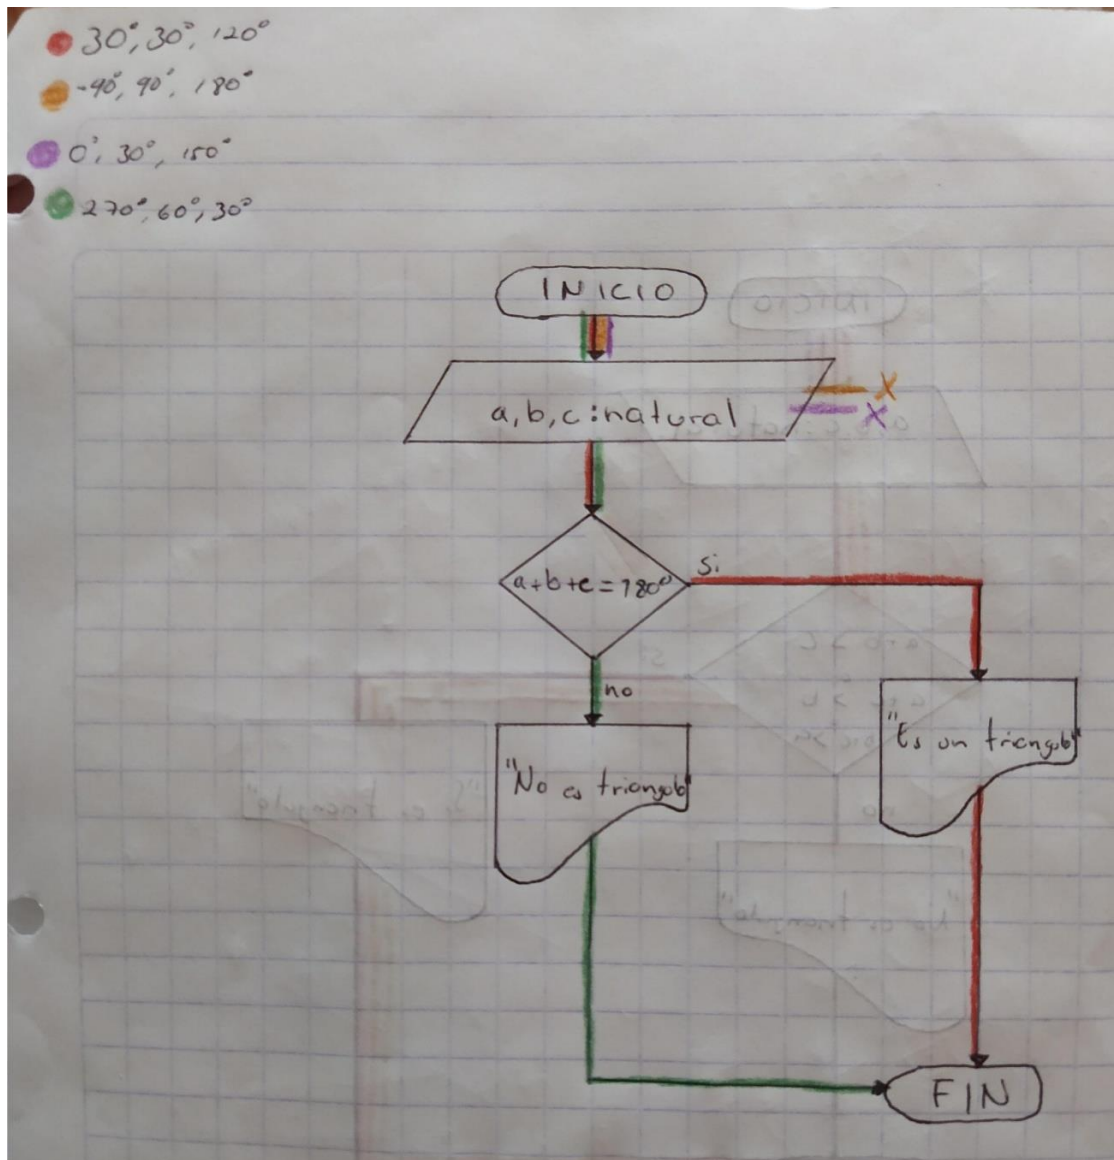 30°, 30°, 120°
-90°, 90°, 180°
0°, 30°, 150°
270°, 60°, 30°
INICIO
a, b, c : natural
a+b+c = 180°
Si
no
"Es un triangulo"
"No es triangulo"
FIN